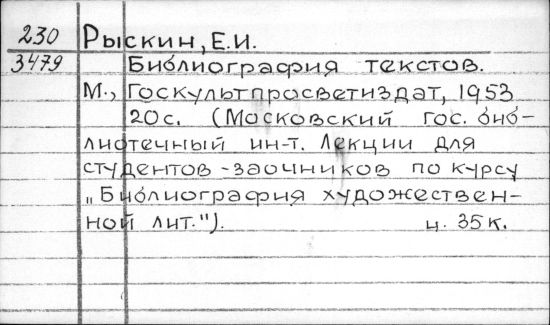 230
3479
Рыскин, Е.И.
Библиография текстов.
М., Госкультпросветиздат, 1953
20с. (Московский гос. биб-
лиотечный ин-т. Лекции для
студентов-заочников по курсу
„Библиография художествен-
ной лит."). ц. 35к.